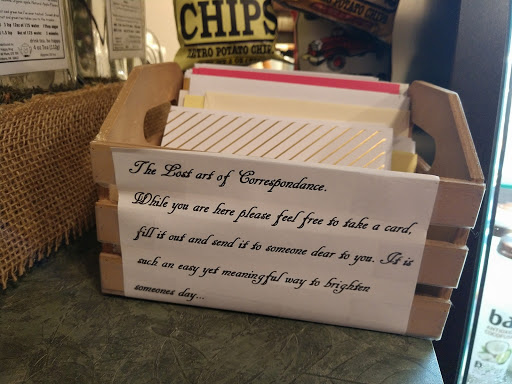 CHIPS
RETRO POTATO CHIPS
The Lost art of Correspondance.
While you are here please feel free to take a card,
fill it out and send it to someone dear to you. It is
such an easy yet meaningful way to brighten
someones day...
ba